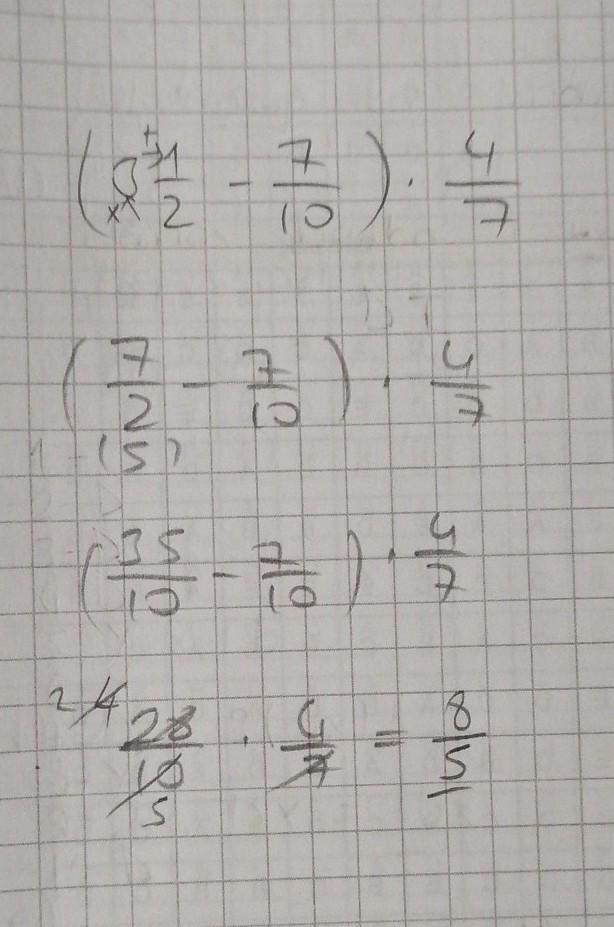 (3 1/2 - 7/10) · 4/7
(7/2 - 7/10) · 4/7
(5)
(35/10 - 7/10) · 4/7
2 4 28/10 · 4/7 = 8/5
5